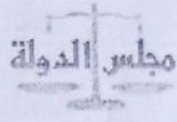 مجلس الدولة